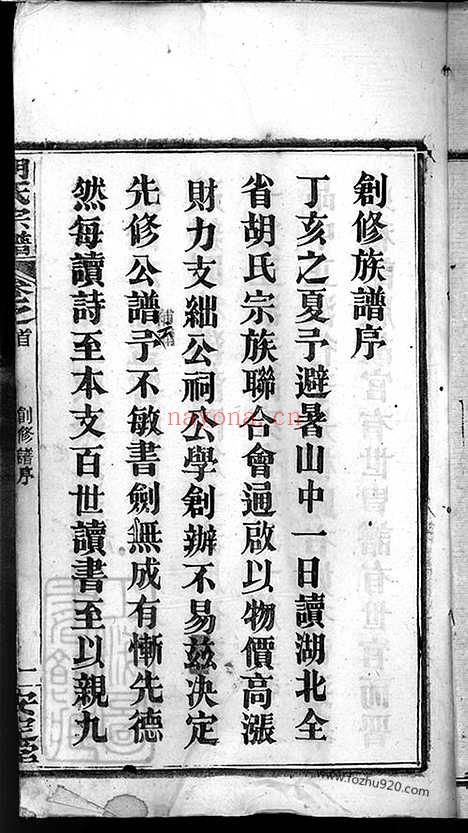 創修族譜序
丁亥之夏予避暑山中一日讀湖北全
省胡氏宗族聯合會通啟以物價高漲
財力支絀公祠公學創辦不易茲決定
先修公譜予不敏書劍無成有慚先德
然每讀詩至本支百世讀書至以親九
胡氏宗譜
卷之首
創修譜序
一
安定堂
nayona.cn
www.fozhu920.com